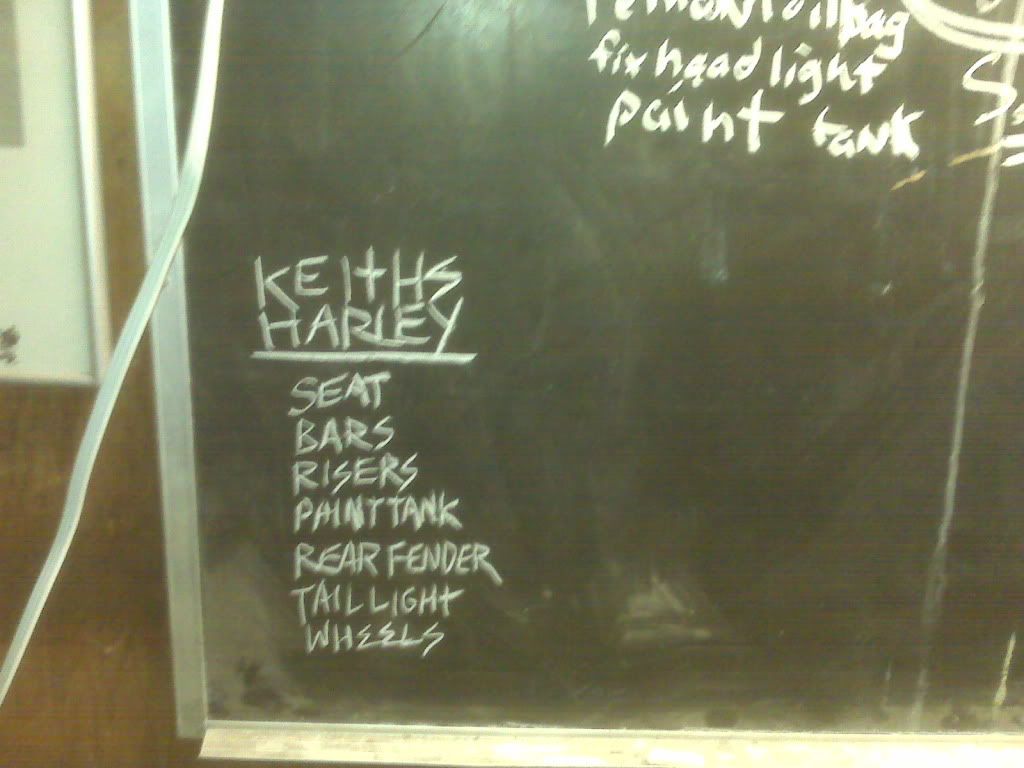 fix headlight
paint tank
KEITHS
HARLEY
SEAT
BARS
RISERS
PAINT TANK
REAR FENDER
TAIL LIGHT
WHEELS